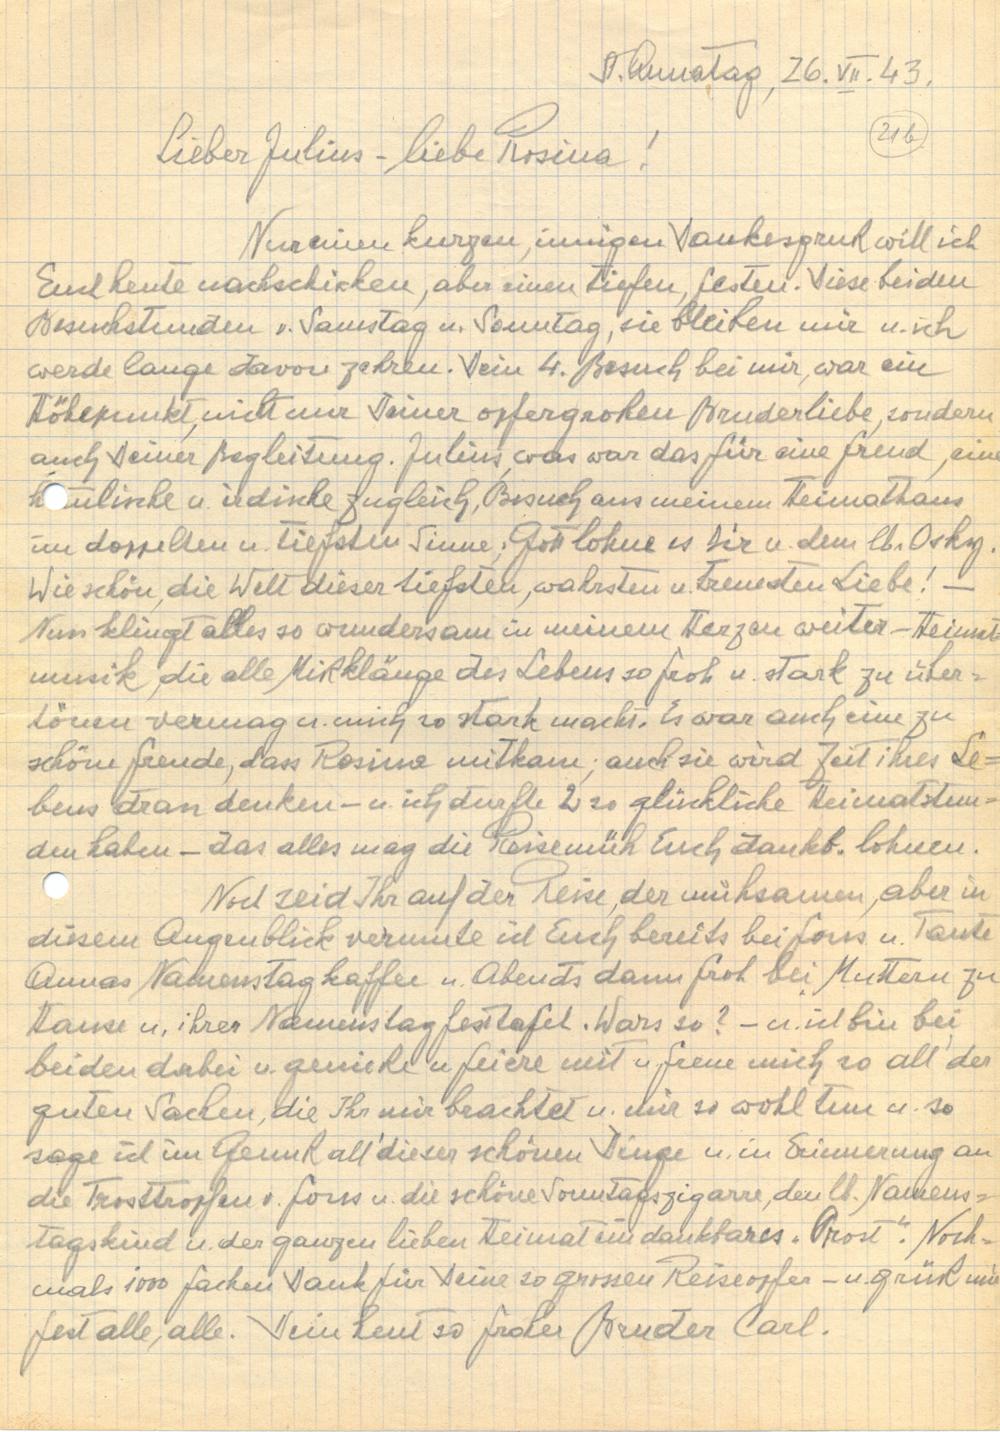 St. Annatag, 26. VII. 43.
21b
Lieber Julius - liebe Rosina!
Nur einen kurzen, innigen Dankesgruß will ich
Euch heute nachschicken, aber einen tiefen, festen. Diese beiden
Besuchstunden v. Samstag u. Sonntag, sie bleiben mir u. ich
werde lange davon zehren. Dein 4. Besuch bei mir, war ein
Höhepunkt, nicht nur Deiner opfergroßen Bruderliebe, sondern
auch Deiner Begleitung. Julius, was war das für eine Freud, eine
himmlische u. irdische zugleich, Besuch aus meinem Heimathaus
im doppelten u. tiefsten Sinne; Gott lohne es Dir u. dem lb. Osky.
Wie schön, die Welt dieser tiefsten, wahrsten u. treuesten Liebe! —
Nun klingt alles so wundersam in meinem Herzen weiter – Heimat-
musik, die alle Mißklänge des Lebens so froh u. stark zu über=
tönen vermag u. mich so stark macht. Es war auch eine zu
schöne Freude, dass Rosina mitkam; auch sie wird Zeit ihres Le=
bens dran denken – u. ich durfte 2 so glückliche Heimatstun=
den haben – das alles mag die Reisemüh Euch dankb. lohnen.
Noch seid Ihr auf der Reise, der mühsamen, aber in
diesem Augenblick vermute ich Euch bereits bei Forss u. Tante
Annas Namenstagkaffee u. Abends dann froh bei Muttern zu
Hause u. ihrer Namenstagfesttafel. Wars so? – u. ich bin bei
beiden dabei u. genieße u. feiere mit u. freue mich so all' der
guten Sachen, die Ihr mir brachtet u. mir so wohl tun u. so
sage ich im Genuß all' dieser schönen Dinge u. in Erinnerung an
die Trosttropfen v. Forss u. die schöne Sonntagszigarre, den lb. Namens=
tagskind u. der ganzen lieben Heimat ein dankbares „Prost". Noch=
mals 1000 fachen Dank für Deine so grossen Reiseopfer – u. grüß mir
fest alle, alle. Dein heut so froher Bruder Carl.